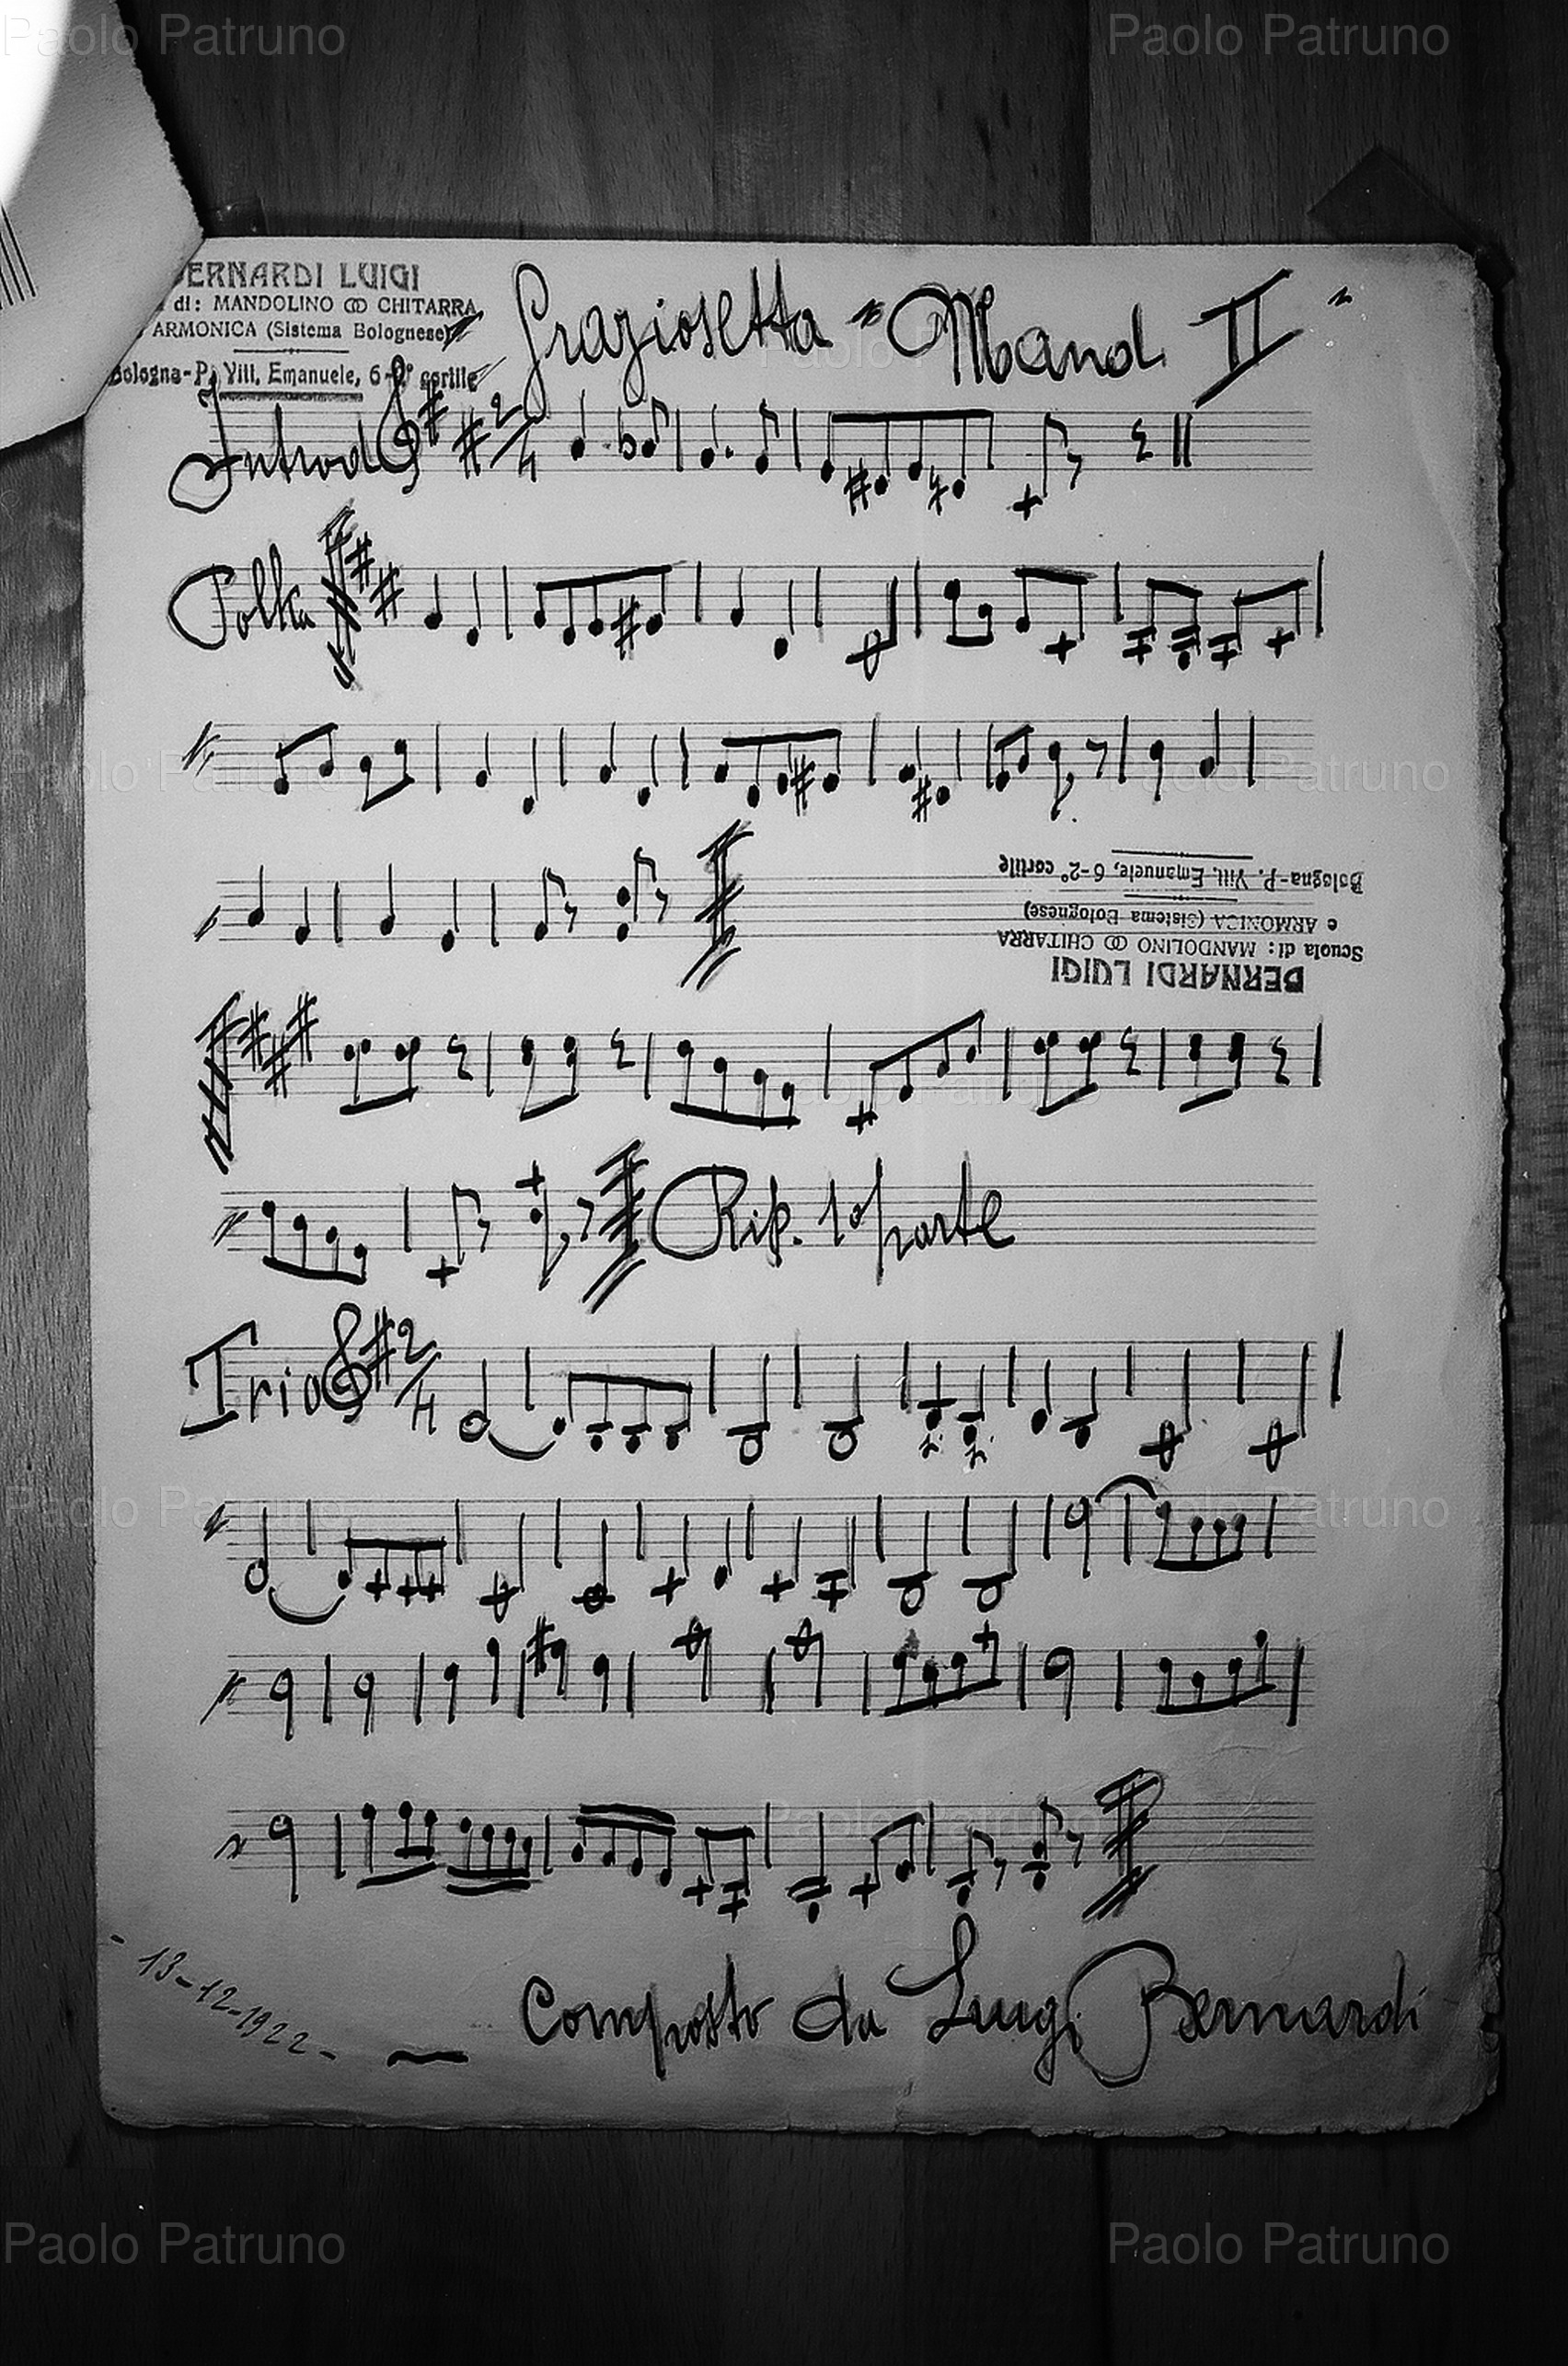 Paolo Patruno
Paolo Patruno
ERNARDI LUIGI
di: MANDOLINO e CHITARRA
ARMONICA (Sistema Bolognese)
Bologna-P. Vitt. Emanuele, 6-2° cortile
Graziosetta "Mand II"
Introd 2/4
Polka
Paolo Patruno
Paolo Patruno
Bologna-P. Vitt. Emanuele, 6-2° cortile
e ARMONICA (Sistema Bolognese)
Scuola di: MANDOLINO e CHITARRA
BERNARDI LUIGI
Paolo Patruno
Rip. 1a parte
Trio 2/4
Paolo Patruno
Paolo Patruno
Paolo Patruno
- 13-12-1922-
Composto da Luigi Bernardi
Paolo Patruno
Paolo Patruno